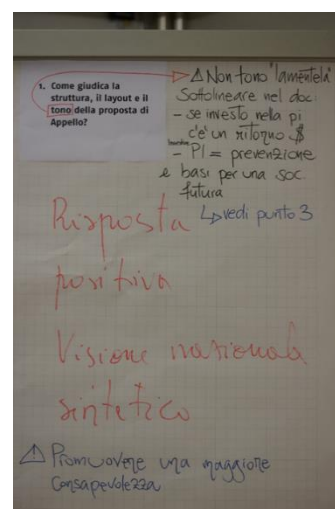 1. Come giudica la
struttura, il layout e il
tono della proposta di
Appello?
⚠ Non tono "lamentela"
Sottolineare nel doc:
- se investo nella pi
c'e' un ritorno $
- PI = prevenzione
e basi per una soc.
futura
↳ vedi punto 3
Risposta
positiva
Visione nazionale
sintetico
⚠ Promuovere una maggiore
Consapevolezza